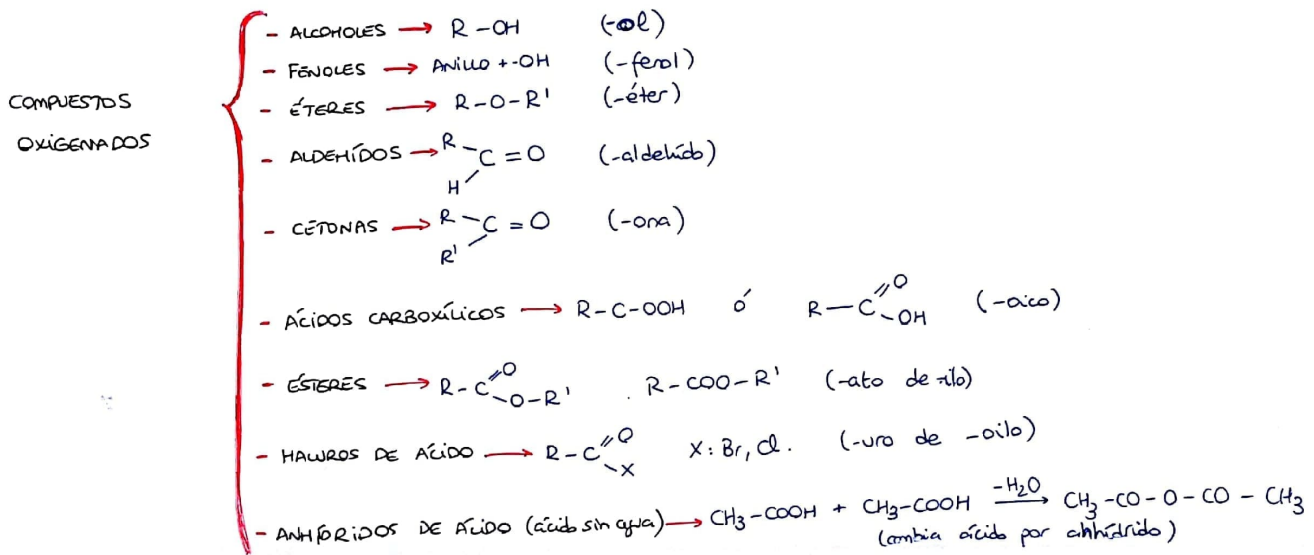 COMPUESTOS
OXIGENADOS
- ALCOHOLES → R-OH (-ol)
- FENOLES → ANILLO + -OH (-fenol)
- ÉTERES → R-O-R' (-éter)
- ALDEHÍDOS → R C=O H (-aldehído)
- CETONAS → R C=O R' (-ona)
- ÁCIDOS CARBOXÍLICOS → R-C-OOH ó R-C O OH (-oico)
- ÉSTERES → R-C O O-R' . R-COO-R' (-ato de -ilo)
- HALUROS DE ÁCIDO → R-C O X X: Br, Cl. (-uro de -oilo)
- ANHÍDRIDOS DE ÁCIDO (ácido sin agua) → CH3-COOH + CH3-COOH -H2O → CH3-CO-O-CO-CH3
(cambia ácido por anhídrido)